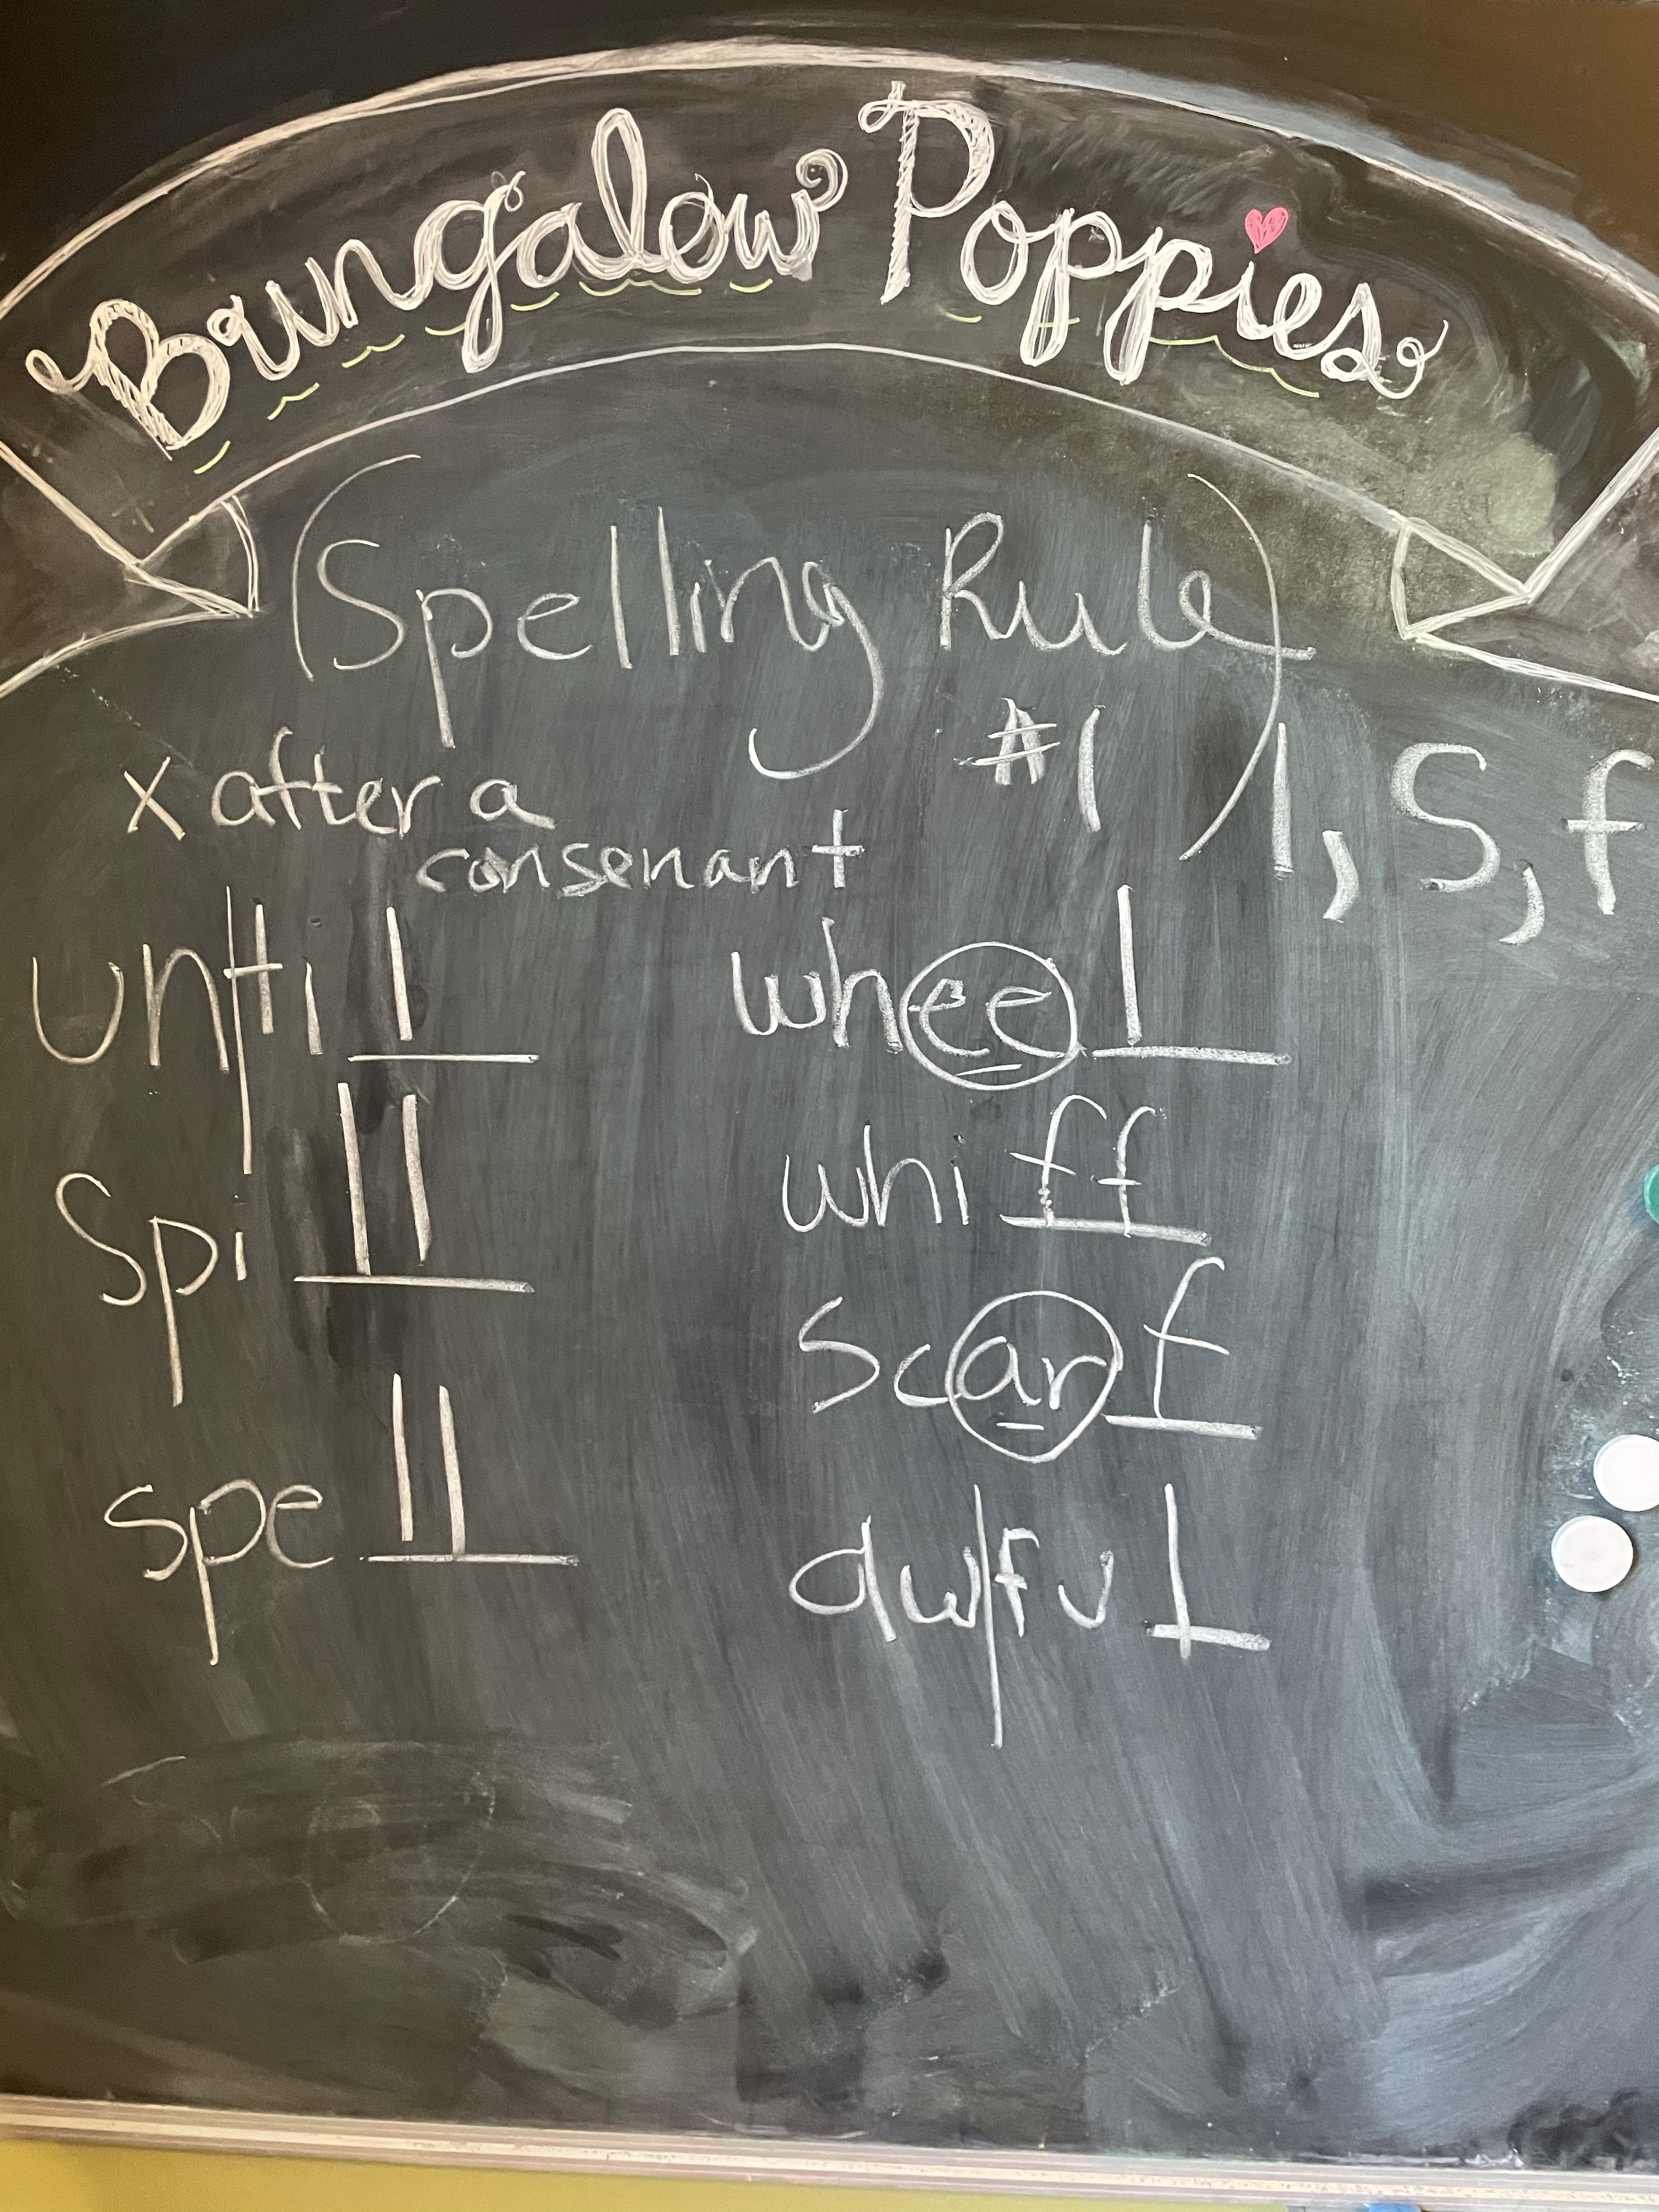 Bungalow Poppies
(Spelling Rule
#1)
l, s, f
x after a
consenant
until
spill
spell
wheel
whiff
scarf
awful